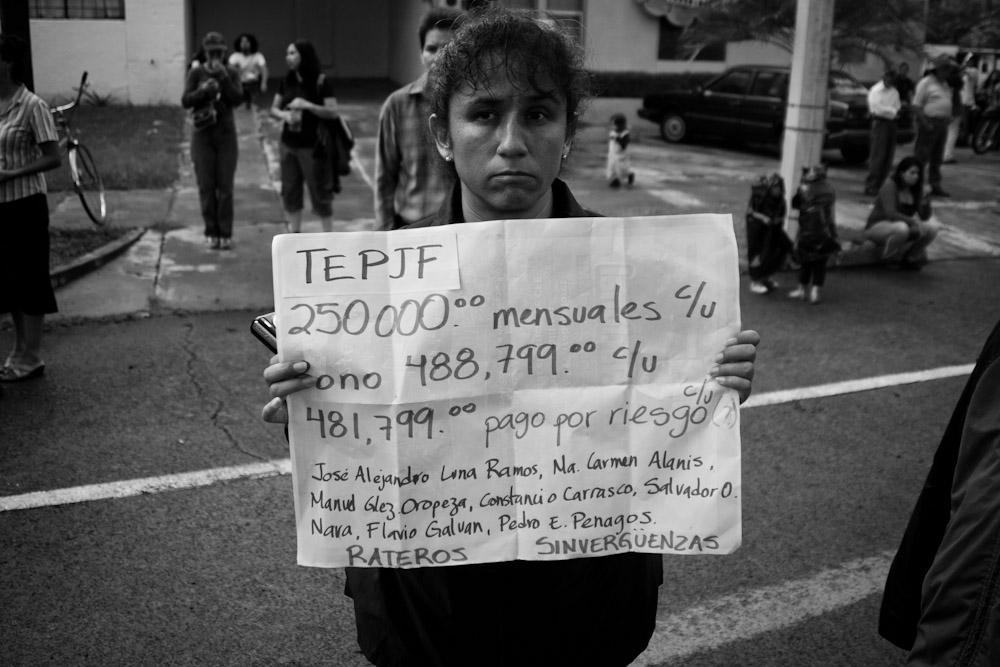 TEPJF
250000.00 mensuales c/u
ono 488,799.00 c/u
c/u
481,799.00 pago por riesgo (?)
José Alejandro Luna Ramos, Ma. Carmen Alanis,
Manuel Glez. Oropeza, Constancio Carrasco, Salvador O.
Nava, Flavio Galvan, Pedro E. Penagos.
RATEROS SINVERGÜENZAS